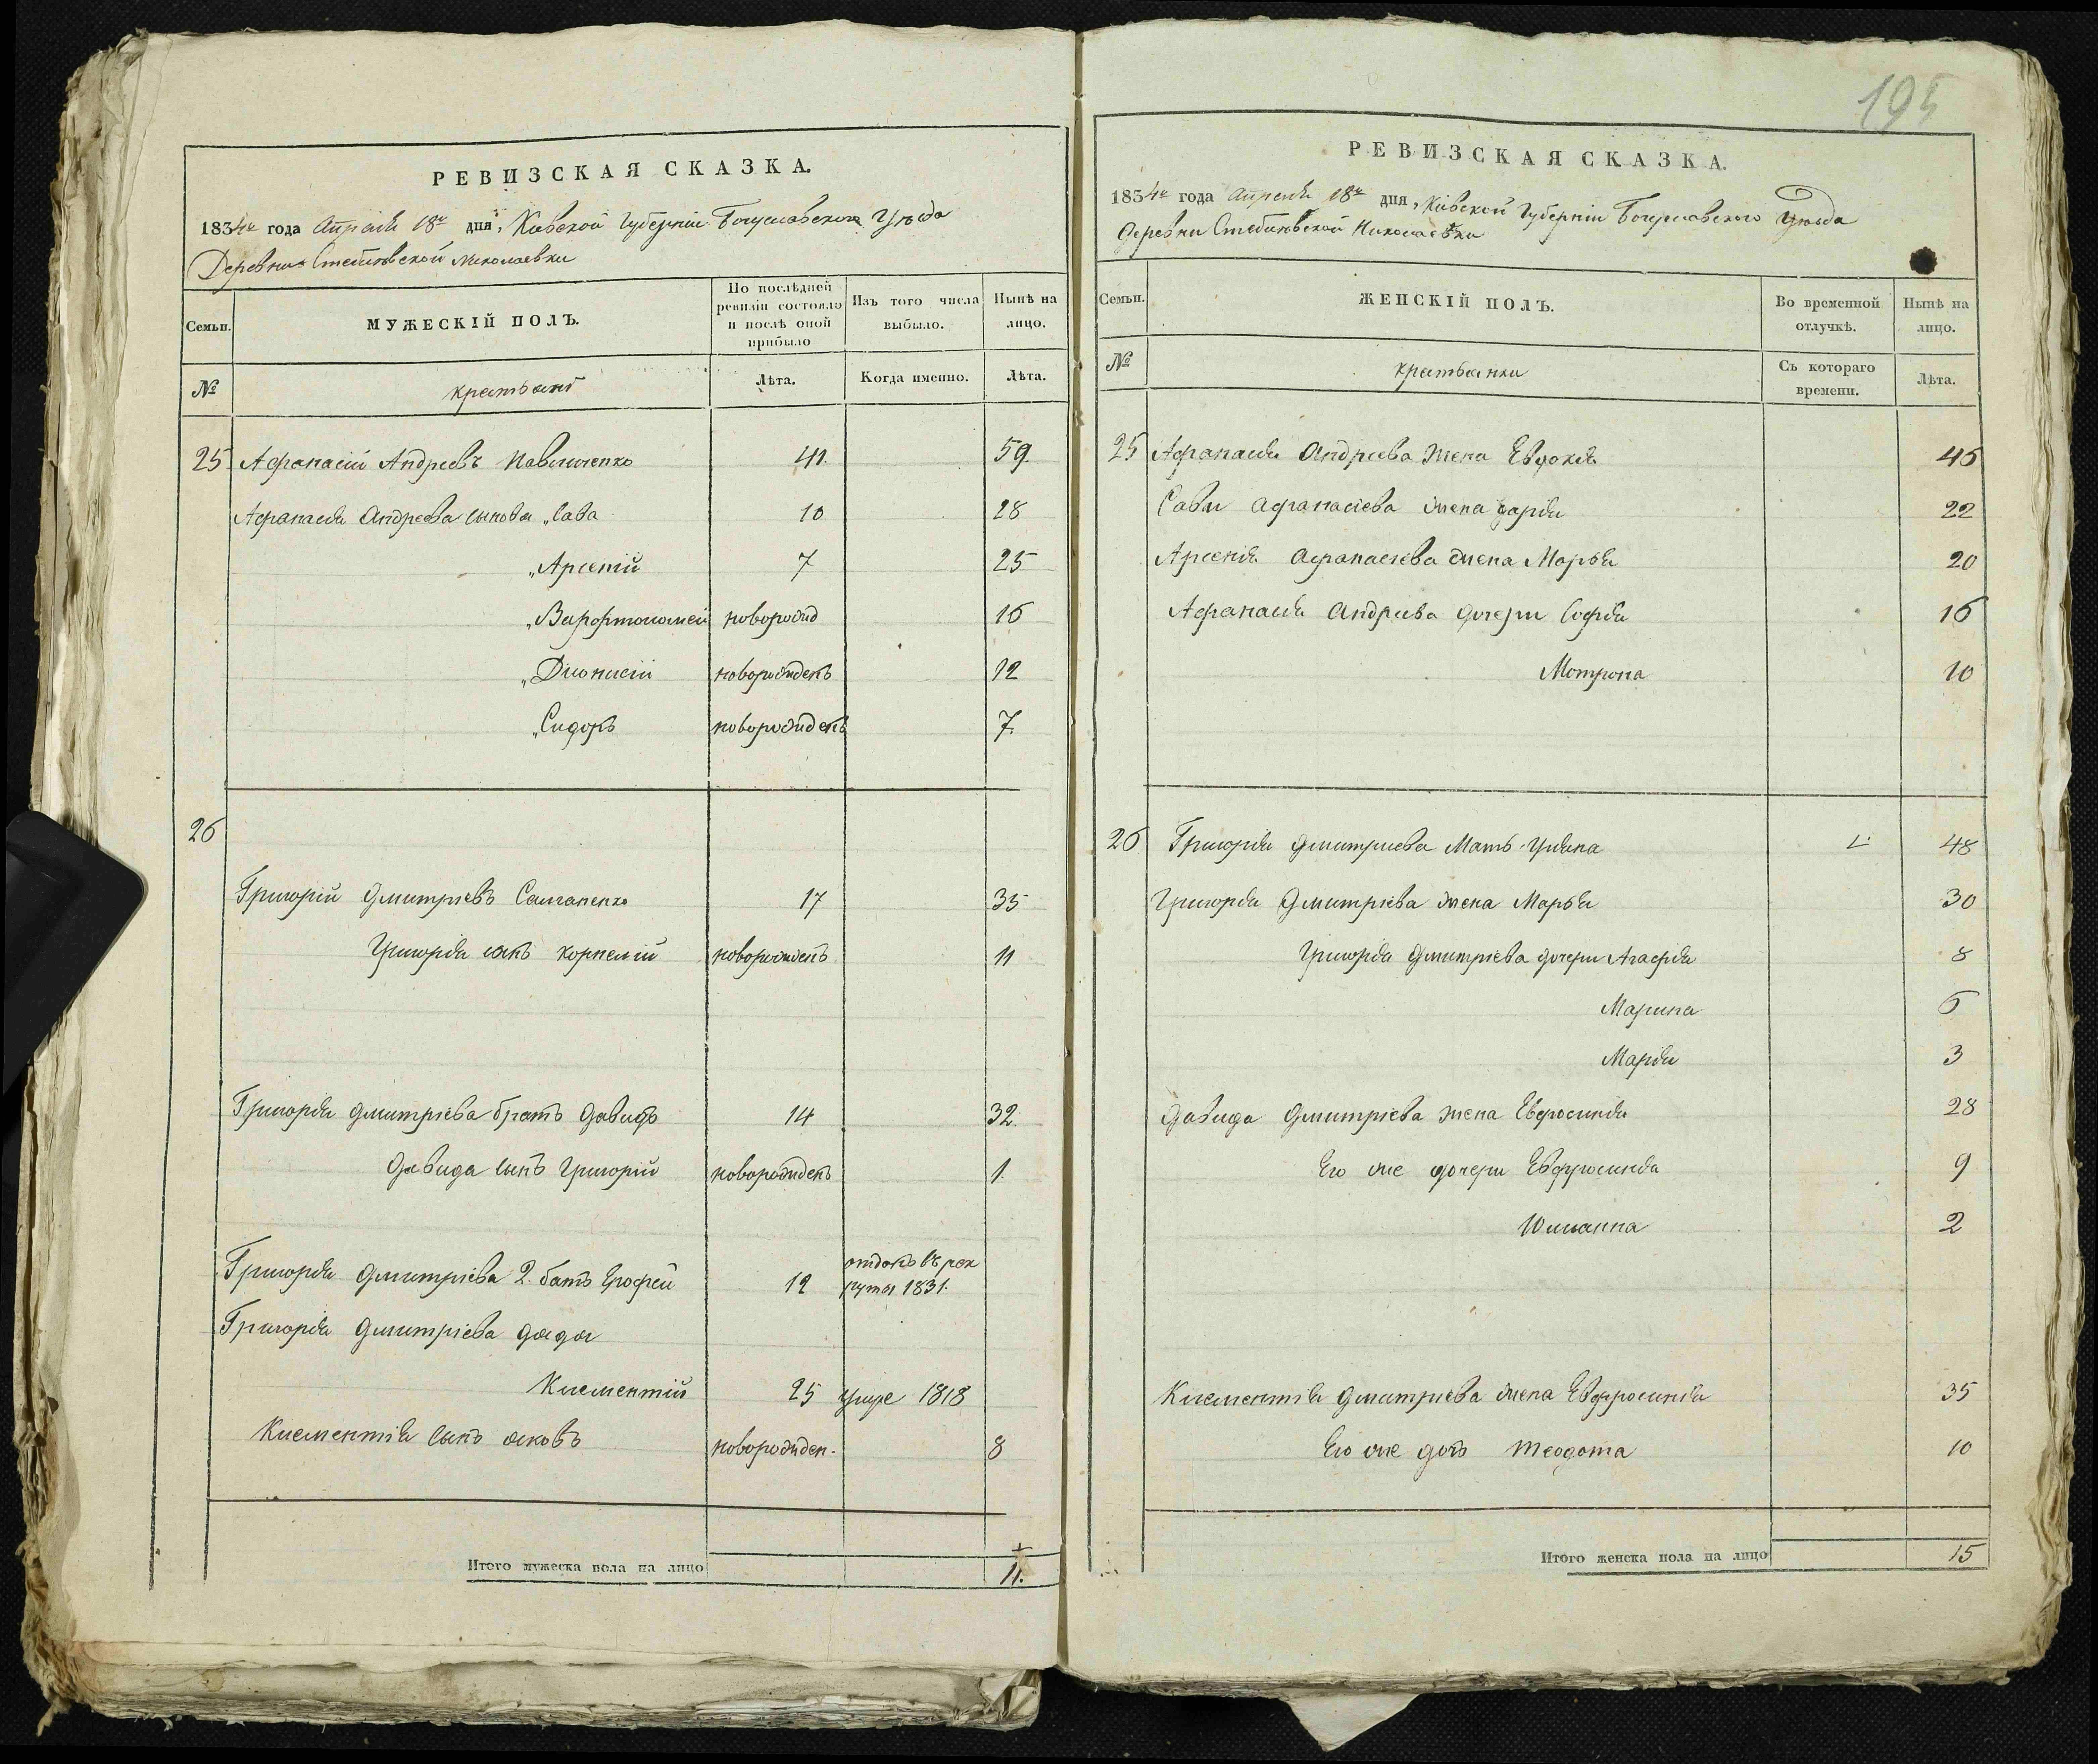 РЕВИЗСКАЯ СКАЗКА.
1834го года Апреля 18го дня, Киевской Губернии Богуславского Уезда
Деревни Стебловской Николаевки
Семьи.
МУЖЕСКІЙ ПОЛЪ.
По послѣдней ревизіи состояло и послѣ оной прибыло
Изъ того числа выбыло.
Нынѣ на лицо.
№
Лѣта.
Когда именно.
Лѣта.
25 Афанасій Андреевъ 41. 59.
Афанасия Андреева сыновья „Сава 10 28
„Арсений 7 25
„Варфтоломей новорожд 16
„Дионисий новорожденъ 12
„Сидоръ новорожденъ 7.
26
Григорий Дмитриевъ 17 35
Григория сынъ Корнелий новорожденъ 11
Григория Дмитриева братъ Давидъ 14 32.
Давида сынъ Григорий новорожденъ 1.
Григория Дмитриева 2. батъ Ерофей 12 отданъ въ рекруты 1831.
Григория Дмитриева дядя
Клементий 25 умре 1818
Клементия сынъ Яковъ новорожден. 8
Итого мужеска пола на лицо 11.
195
РЕВИЗСКАЯ СКАЗКА.
1834го года Апреля 18го дня, Киевской Губернии Богуславского Уезда
Деревни Стебловской Николаевки
Семьи.
ЖЕНСКІЙ ПОЛЪ.
Во временной отлучкѣ.
Нынѣ на лицо.
№
Съ котораго времени.
Лѣта.
25 Афанасия Андреева жена Евдокия 45
Савы Афанасиева жена Дария 22
Арсения Афанасиева жена Марья 20
Афанасия Андреева дочери София 16
Мотрона 10
26 Григория Дмитриева Мать Ульяна 48
Григория Дмитриева жена Марья 30
Григория Дмитриева дочери Агафия 8
Марина 6
Мария 3
Давида Дмитриева жена Евфросиния 28
Его же дочери Евфросиния 9
Юлианна 2
Клементия Дмитриева жена Евфросиния 35
Его же дочь Теодота 10
Итого женска пола на лицо 15